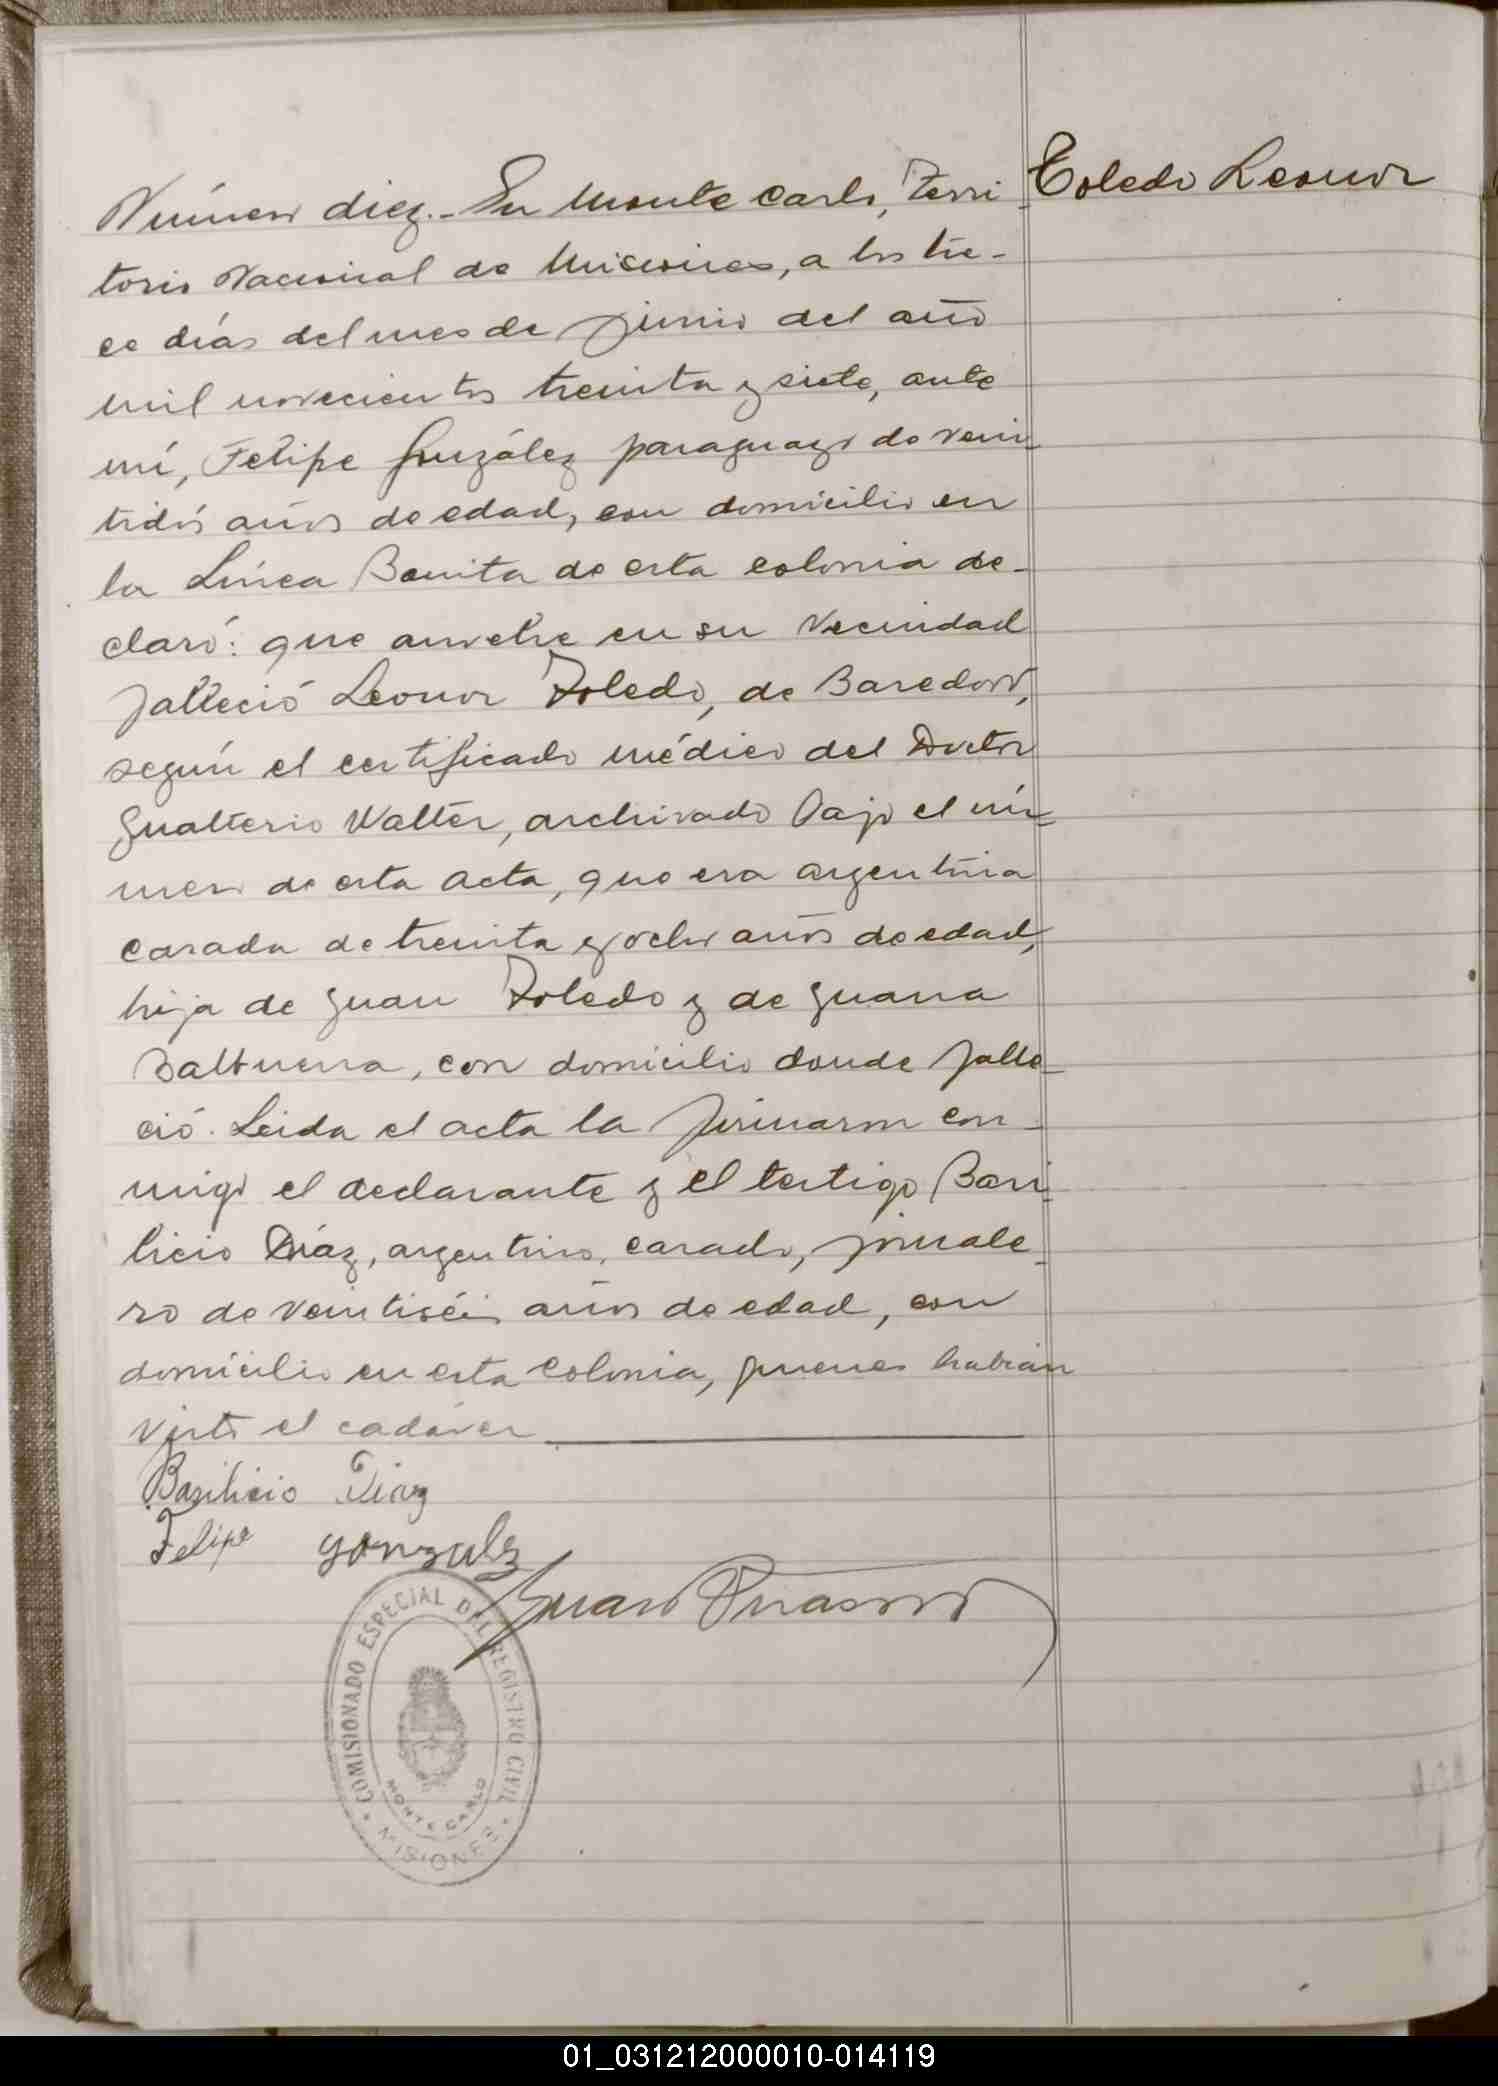 Número diez.- En Monte Carlo, Terri
Toledo Leonor
torio Nacional de Misiones, a los tre-
ce días del mes de junio del año
mil novecientos treinta y siete, ante
mí, Felipe González paraguayo de vein
tidós años de edad, con domicilio en
la Línea Bonita de esta colonia de-
claró: que anoche en su vecindad
falleció Leonor Toledo, de
según el certificado médico del Doctor
Gualterio Walter, archivado bajo el nú-
mero de esta acta, que era argentina
casada de treinta y ocho años de edad,
hija de Juan Toledo y de Juana
Balbuena, con domicilio donde falle-
ció. Leida el acta la firmaron con-
migo el declarante y el testigo Basi-
licio Díaz, argentino, casado, jornale-
ro de veintiséis años de edad, con
domicilio en esta colonia, quienes habían
visto el cadáver
Basilicio Diaz
Felipe gonzalz
Juan
COMISIONADO ESPECIAL DEL REGISTRO CIVIL
MONTE CARLO
MISIONES
01_031212000010-014119